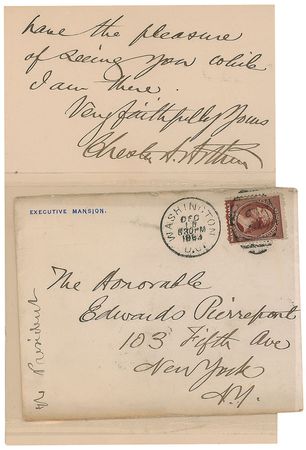 have the pleasure
of seeing you while
I am there.
Very faithfully yours
Chester A. Arthur
EXECUTIVE MANSION.
WASHINGTON
DEC
630PM
D.C.
The Honorable
Edwards Pierrepont
103 Fifth Ave
New York
N.Y.
President